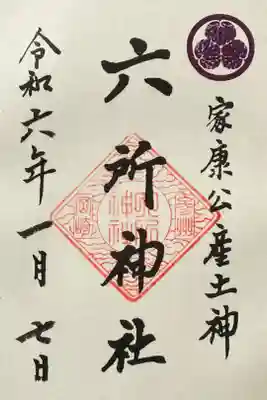 家康公産土神
六所神社
令和六年一月七日